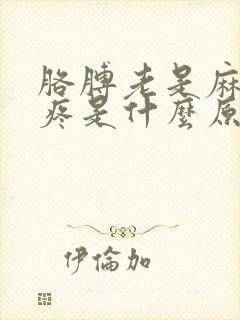 胳膊老是麻
疼是什麼原
伊倫加